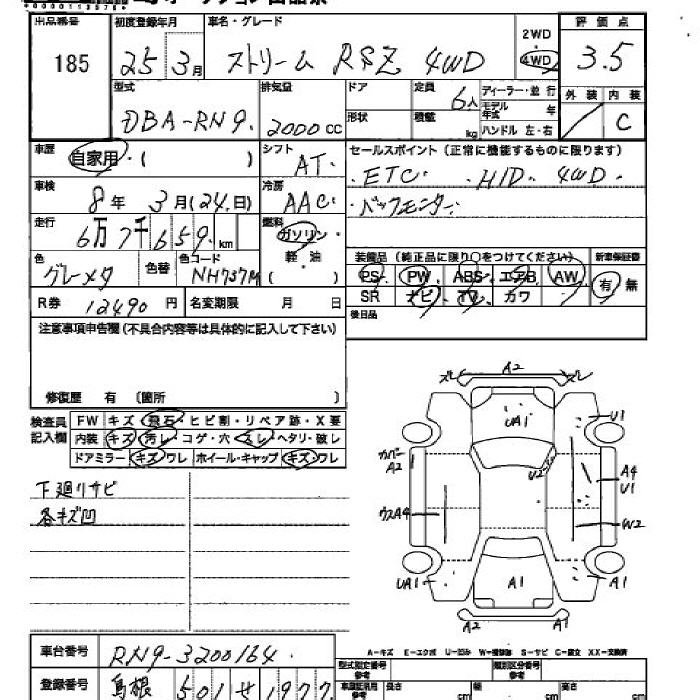 出品番号 185
初度登録年月 25 3月
車名・グレード ストリーム RSZ 4WD
2WD ・ 4WD
評価点 3.5
外装 内装 C
型式 DBA-RN9.
排気量 2000cc
ドア
形状
定員 6人
積載 kg
ディーラー・並行
モデル年式 年
ハンドル 左・右
車歴 自家用・( )
シフト AT.
セールスポイント(正常に機能するものに限ります)
・ETC. ・HID. 4WD.
・バックモニター.
車検 8年 3月(24.日)
冷房 AAC.
走行 6万7千659.km
燃料 ガソリン・軽・油 ( )
色 グレーメタ
色替
色コード NH737M
装備品(純正品に限り○をつけてください)
PS. PW. ABS. エアB. AW.
SR ナビ. TV. カワ
新車保証書 有・無
R券 12490円
名変期限 月 日
後日品
注意事項申告欄(不具合内容等は具体的に記入して下さい)
修復歴 有 〔箇所 〕
検査員記入欄
FW キズ・飛石・ヒビ割・リペア跡・X要
内装 キズ・汚レ・コゲ・穴・スレ・ヘタリ・破レ
ドアミラー キズ・ワレ ホイール・キャップ キズ・ワレ
下廻りサビ
各キズ凹
ズレ A2 ズレ
UA1
U1
カバー A2
U2
A4 U1
ウスA4
W2
UA1
A1
A1
A2
A1
A−キズ E−エクボ U−凹み W−補修跡 S−サビ C−腐食 XX−交換済
車台番号 RN9-3200164.
登録番号 島根 501 せ 1977
型式指定番号 参考
類別区分番号 参考
長さ cm 幅 cm 高さ cm